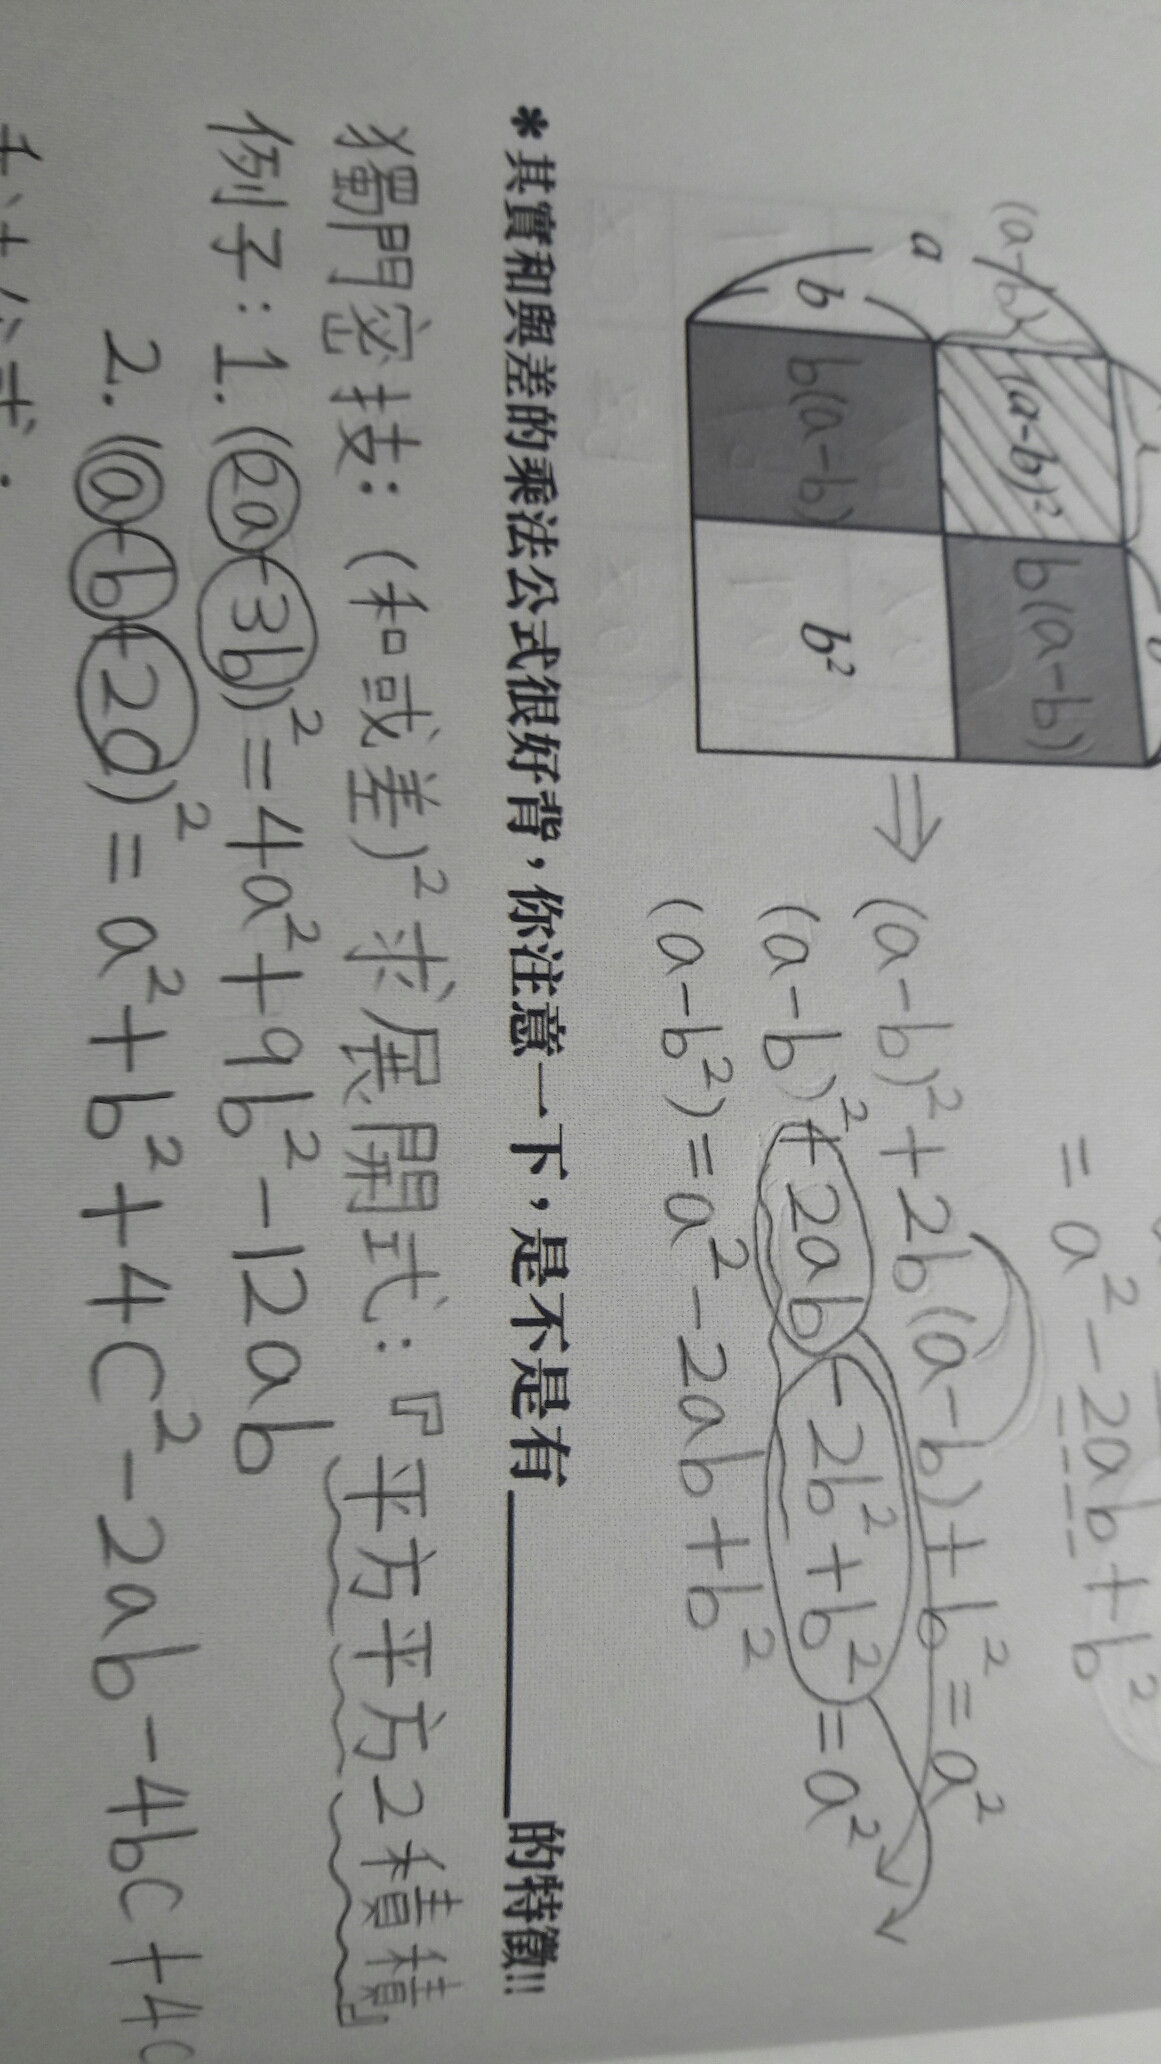 = a² - 2ab + b²
(a-b)
a
b
(a-b)²
b(a-b)
b(a-b)
b²
⇒ (a-b)² + 2b(a-b) + b² = a²
(a-b)² + 2ab - 2b² + b² = a²
(a-b²) = a² - 2ab + b²
*其實和與差的乘法公式很好背，你注意一下，是不是有________的特徵!!
獨門密技：(和或差)²求展開式：『平方平方2積積』
例子：1. (2a-3b)² = 4a² + 9b² - 12ab
2. (a-b+2c)² = a² + b² + 4c² - 2ab - 4bc + 4